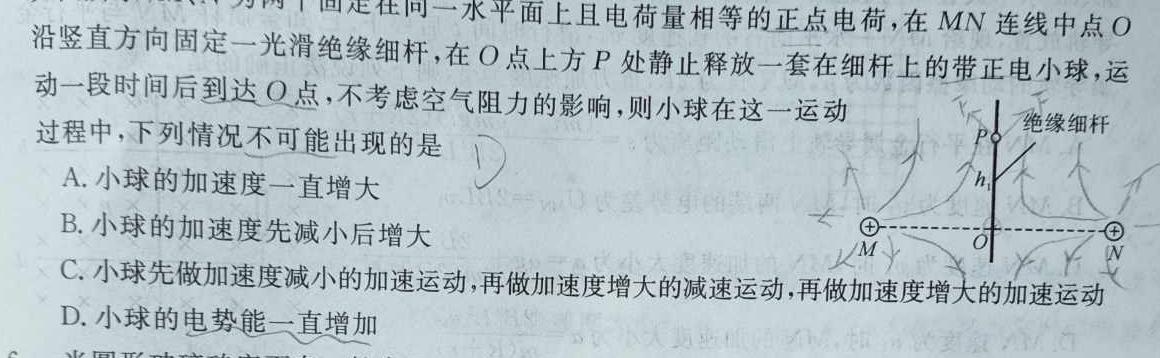 两个固定在同一水平面上且电荷量相等的正点电荷,在 MN 连线中点 O
沿竖直方向固定一光滑绝缘细杆,在 O 点上方 P 处静止释放一套在细杆上的带正电小球,运
动一段时间后到达 O 点,不考虑空气阻力的影响,则小球在这一运动
过程中,下列情况不可能出现的是 D
A. 小球的加速度一直增大
B. 小球的加速度先减小后增大
C. 小球先做加速度减小的加速运动,再做加速度增大的减速运动,再做加速度增大的加速运动
D. 小球的电势能一直增加
P
绝缘细杆
h
M
O
N